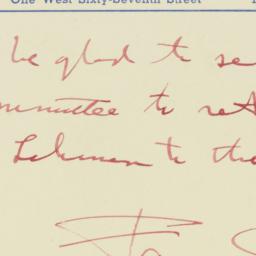 One West Sixty-Seventh Street
be glad to se
ommittee to
Lehman to the